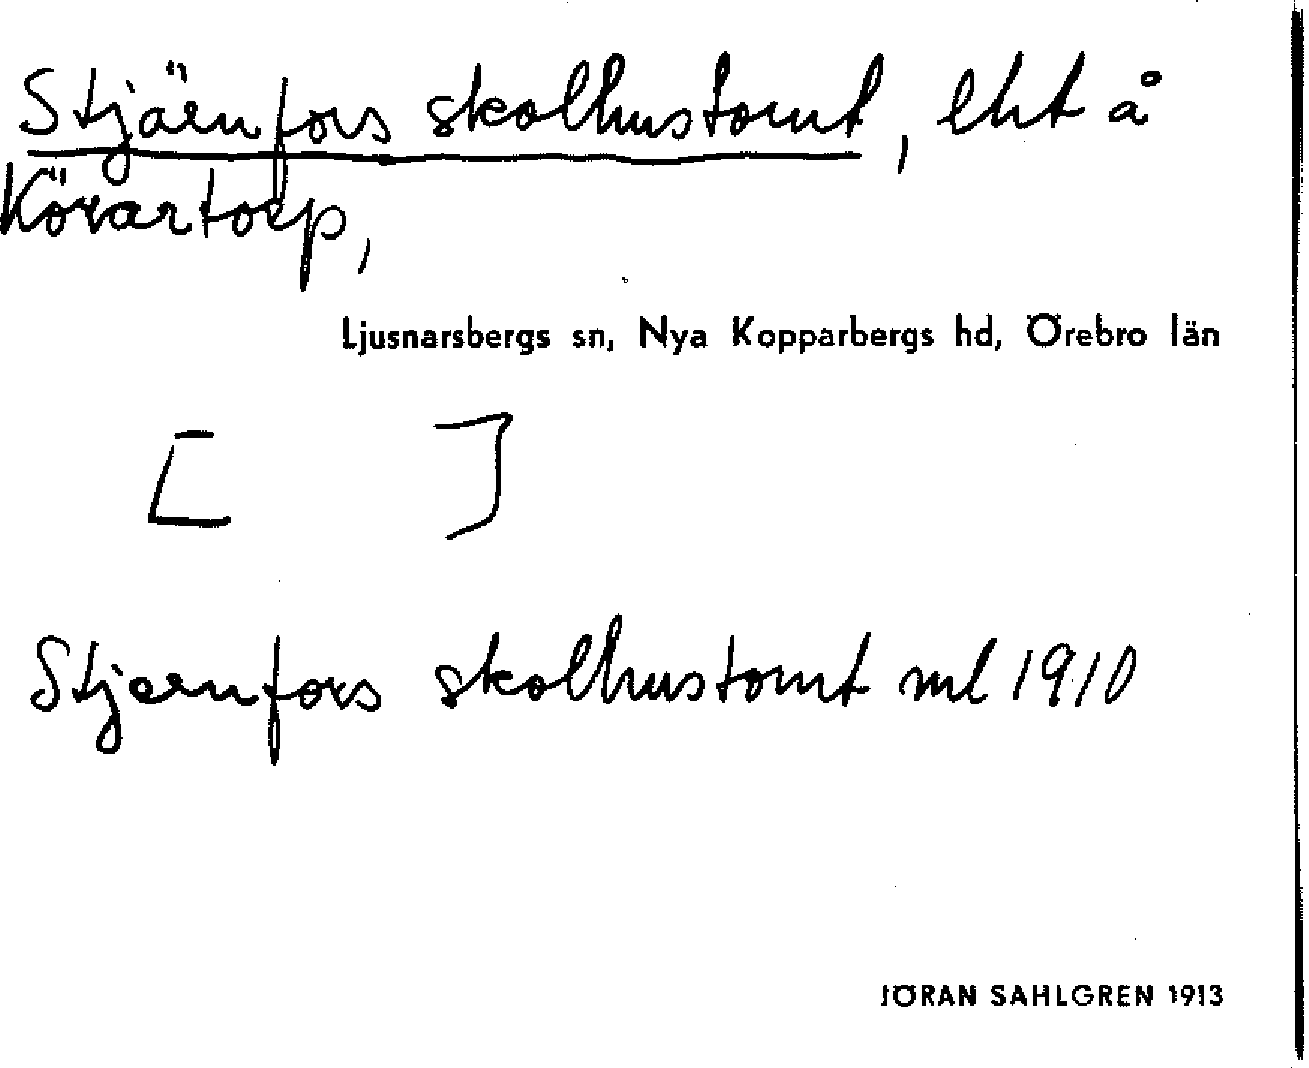 Stjärnfors skolhustomt, lht å
Körartorp,
Ljusnarsbergs sn, Nya Kopparbergs hd, Örebro län
[ ]
Stjernfors skolhustomt ml 1910
JÖRAN SAHLGREN 1913